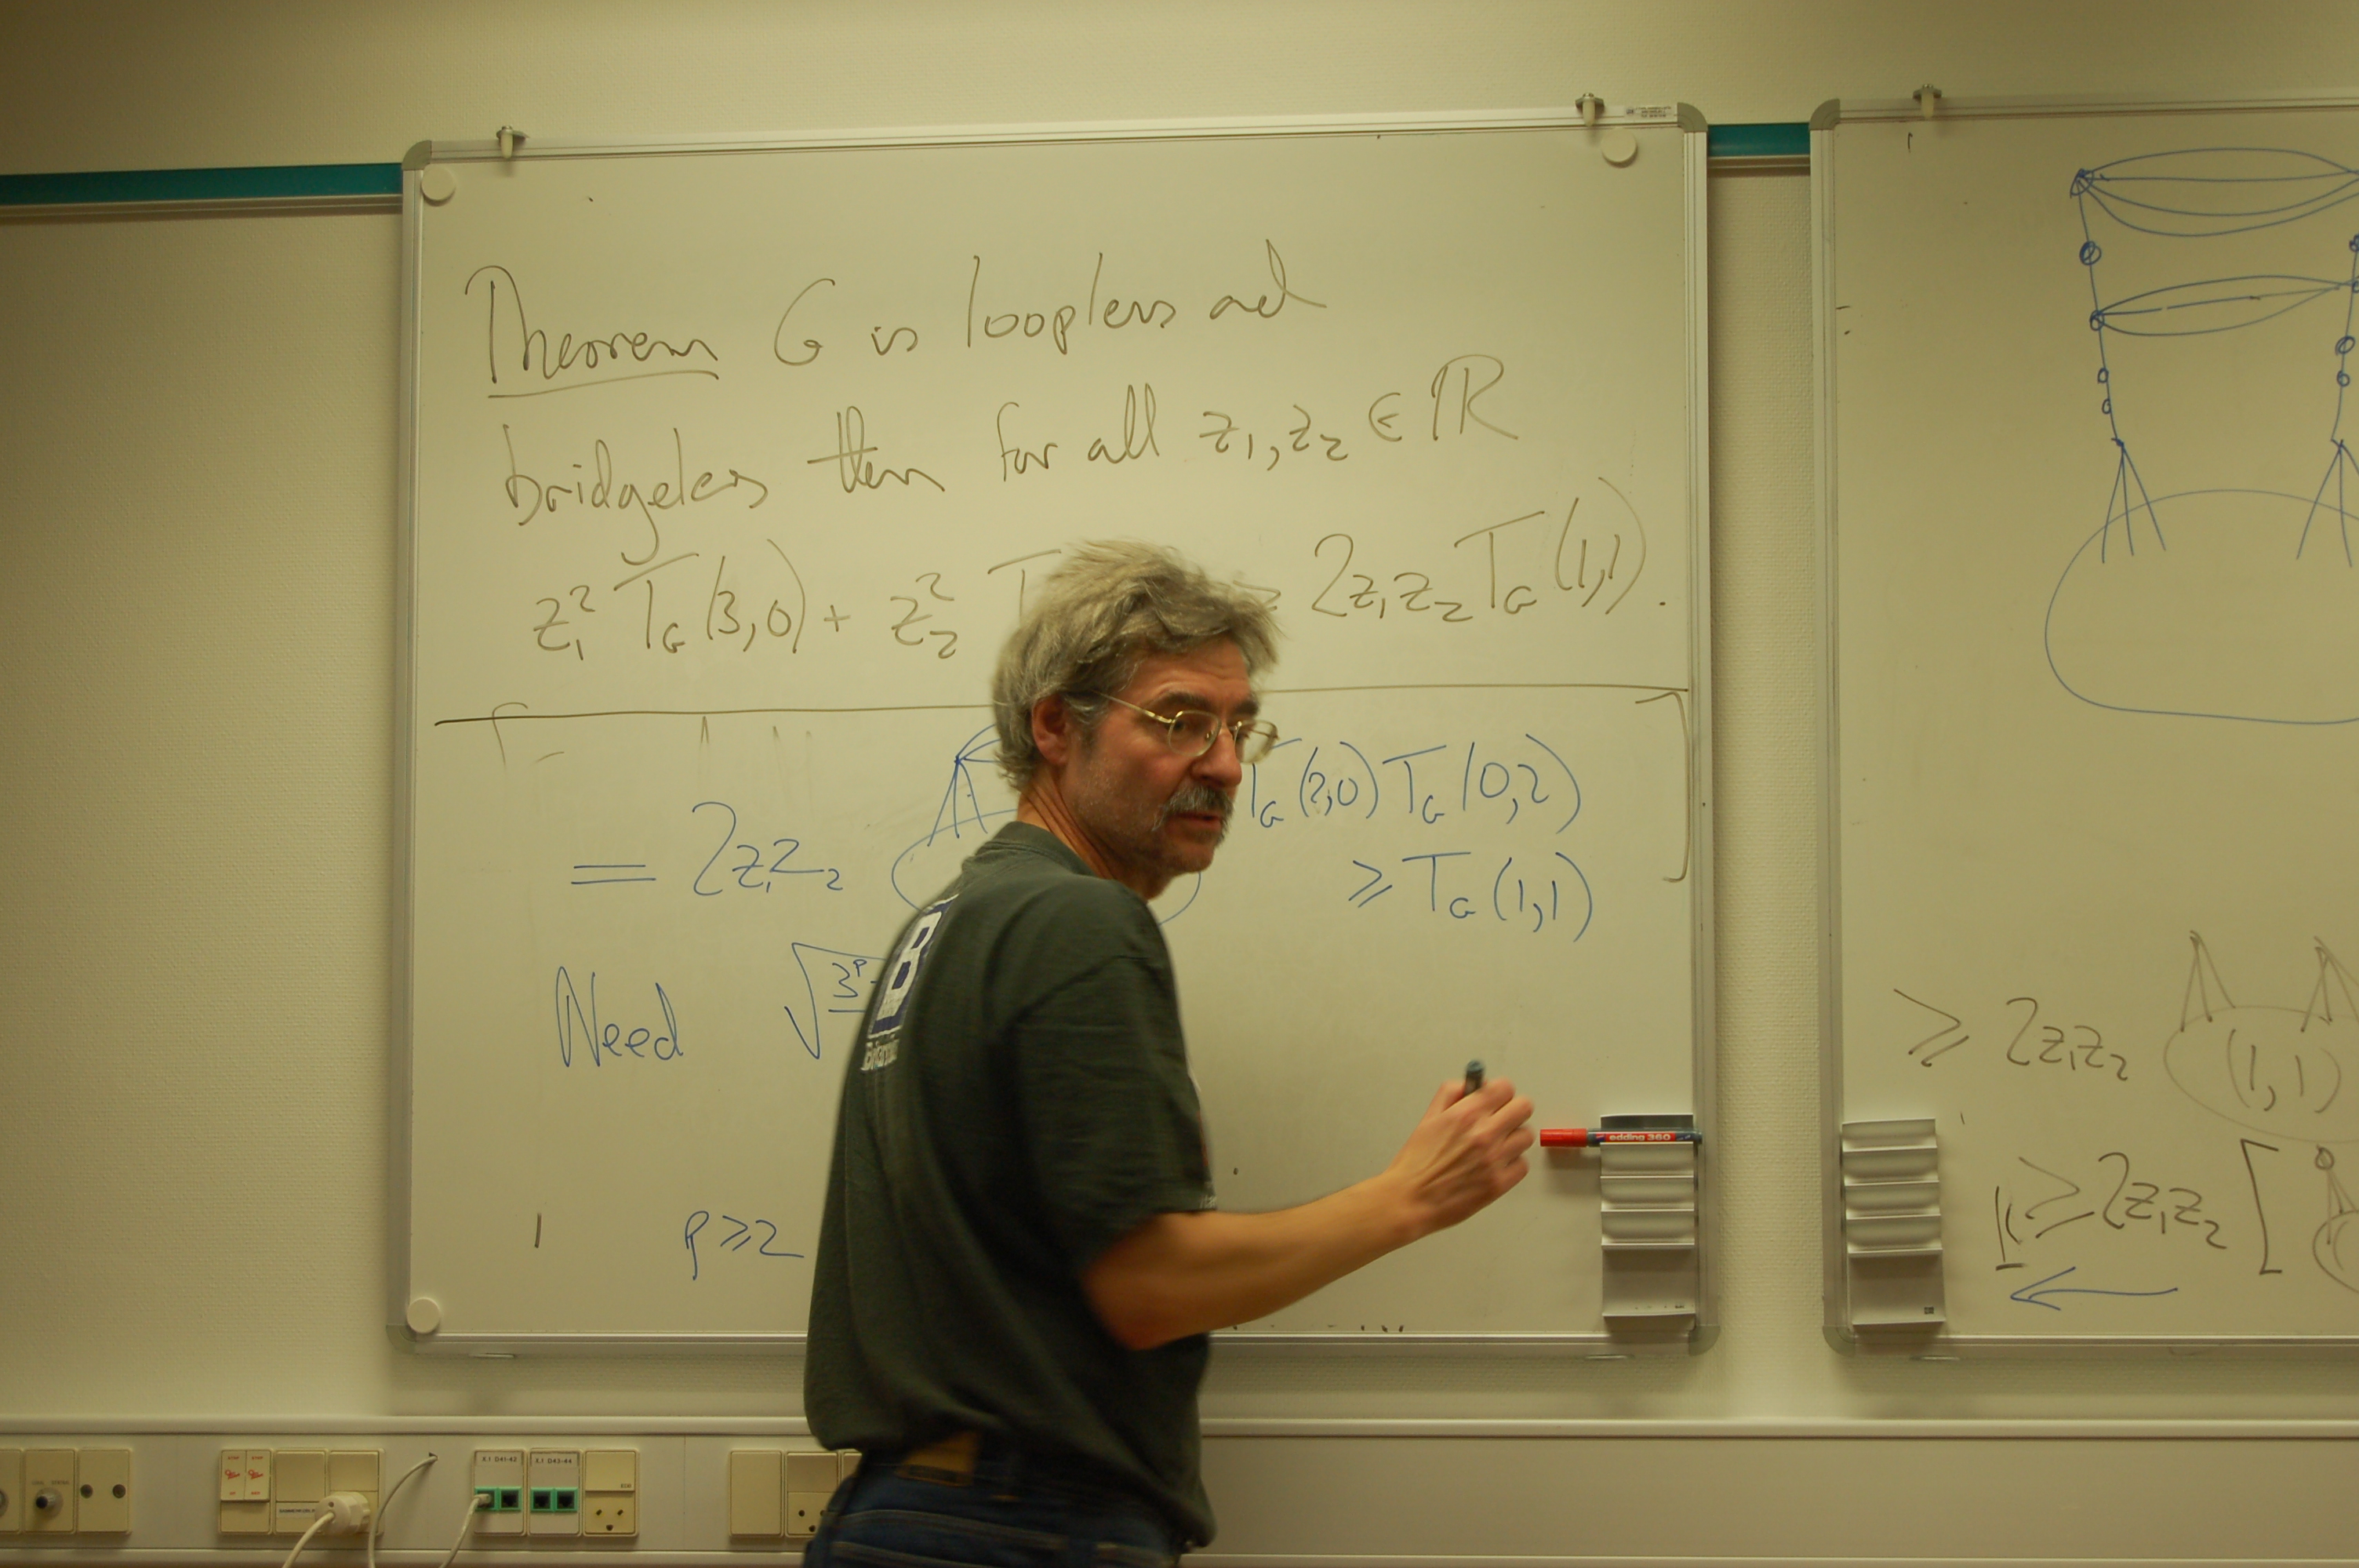 Theorem G is loopless and
bridgeless then for all z₁, z₂ ∈ ℝ
z₁² T_G(3,0) + z₂² T ≥ 2z₁z₂ T_G(1,1).
= 2z₁z₂
T_G(2,0) T_G(0,2)
≥ T_G(1,1)
Need √3^p
p ≥ 2
edding 360
≥ 2z₁z₂ (1,1)
≥ 2z₁z₂ [
X.1 D41-42
X.1 D43-44